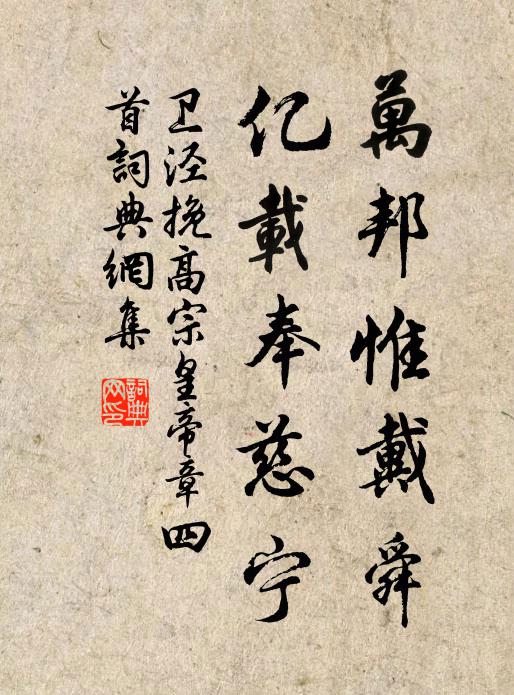 萬邦惟戴舜
亿載奉慈宁
卫泾挽高宗皇帝章四
首詞典網集
詞典
网印